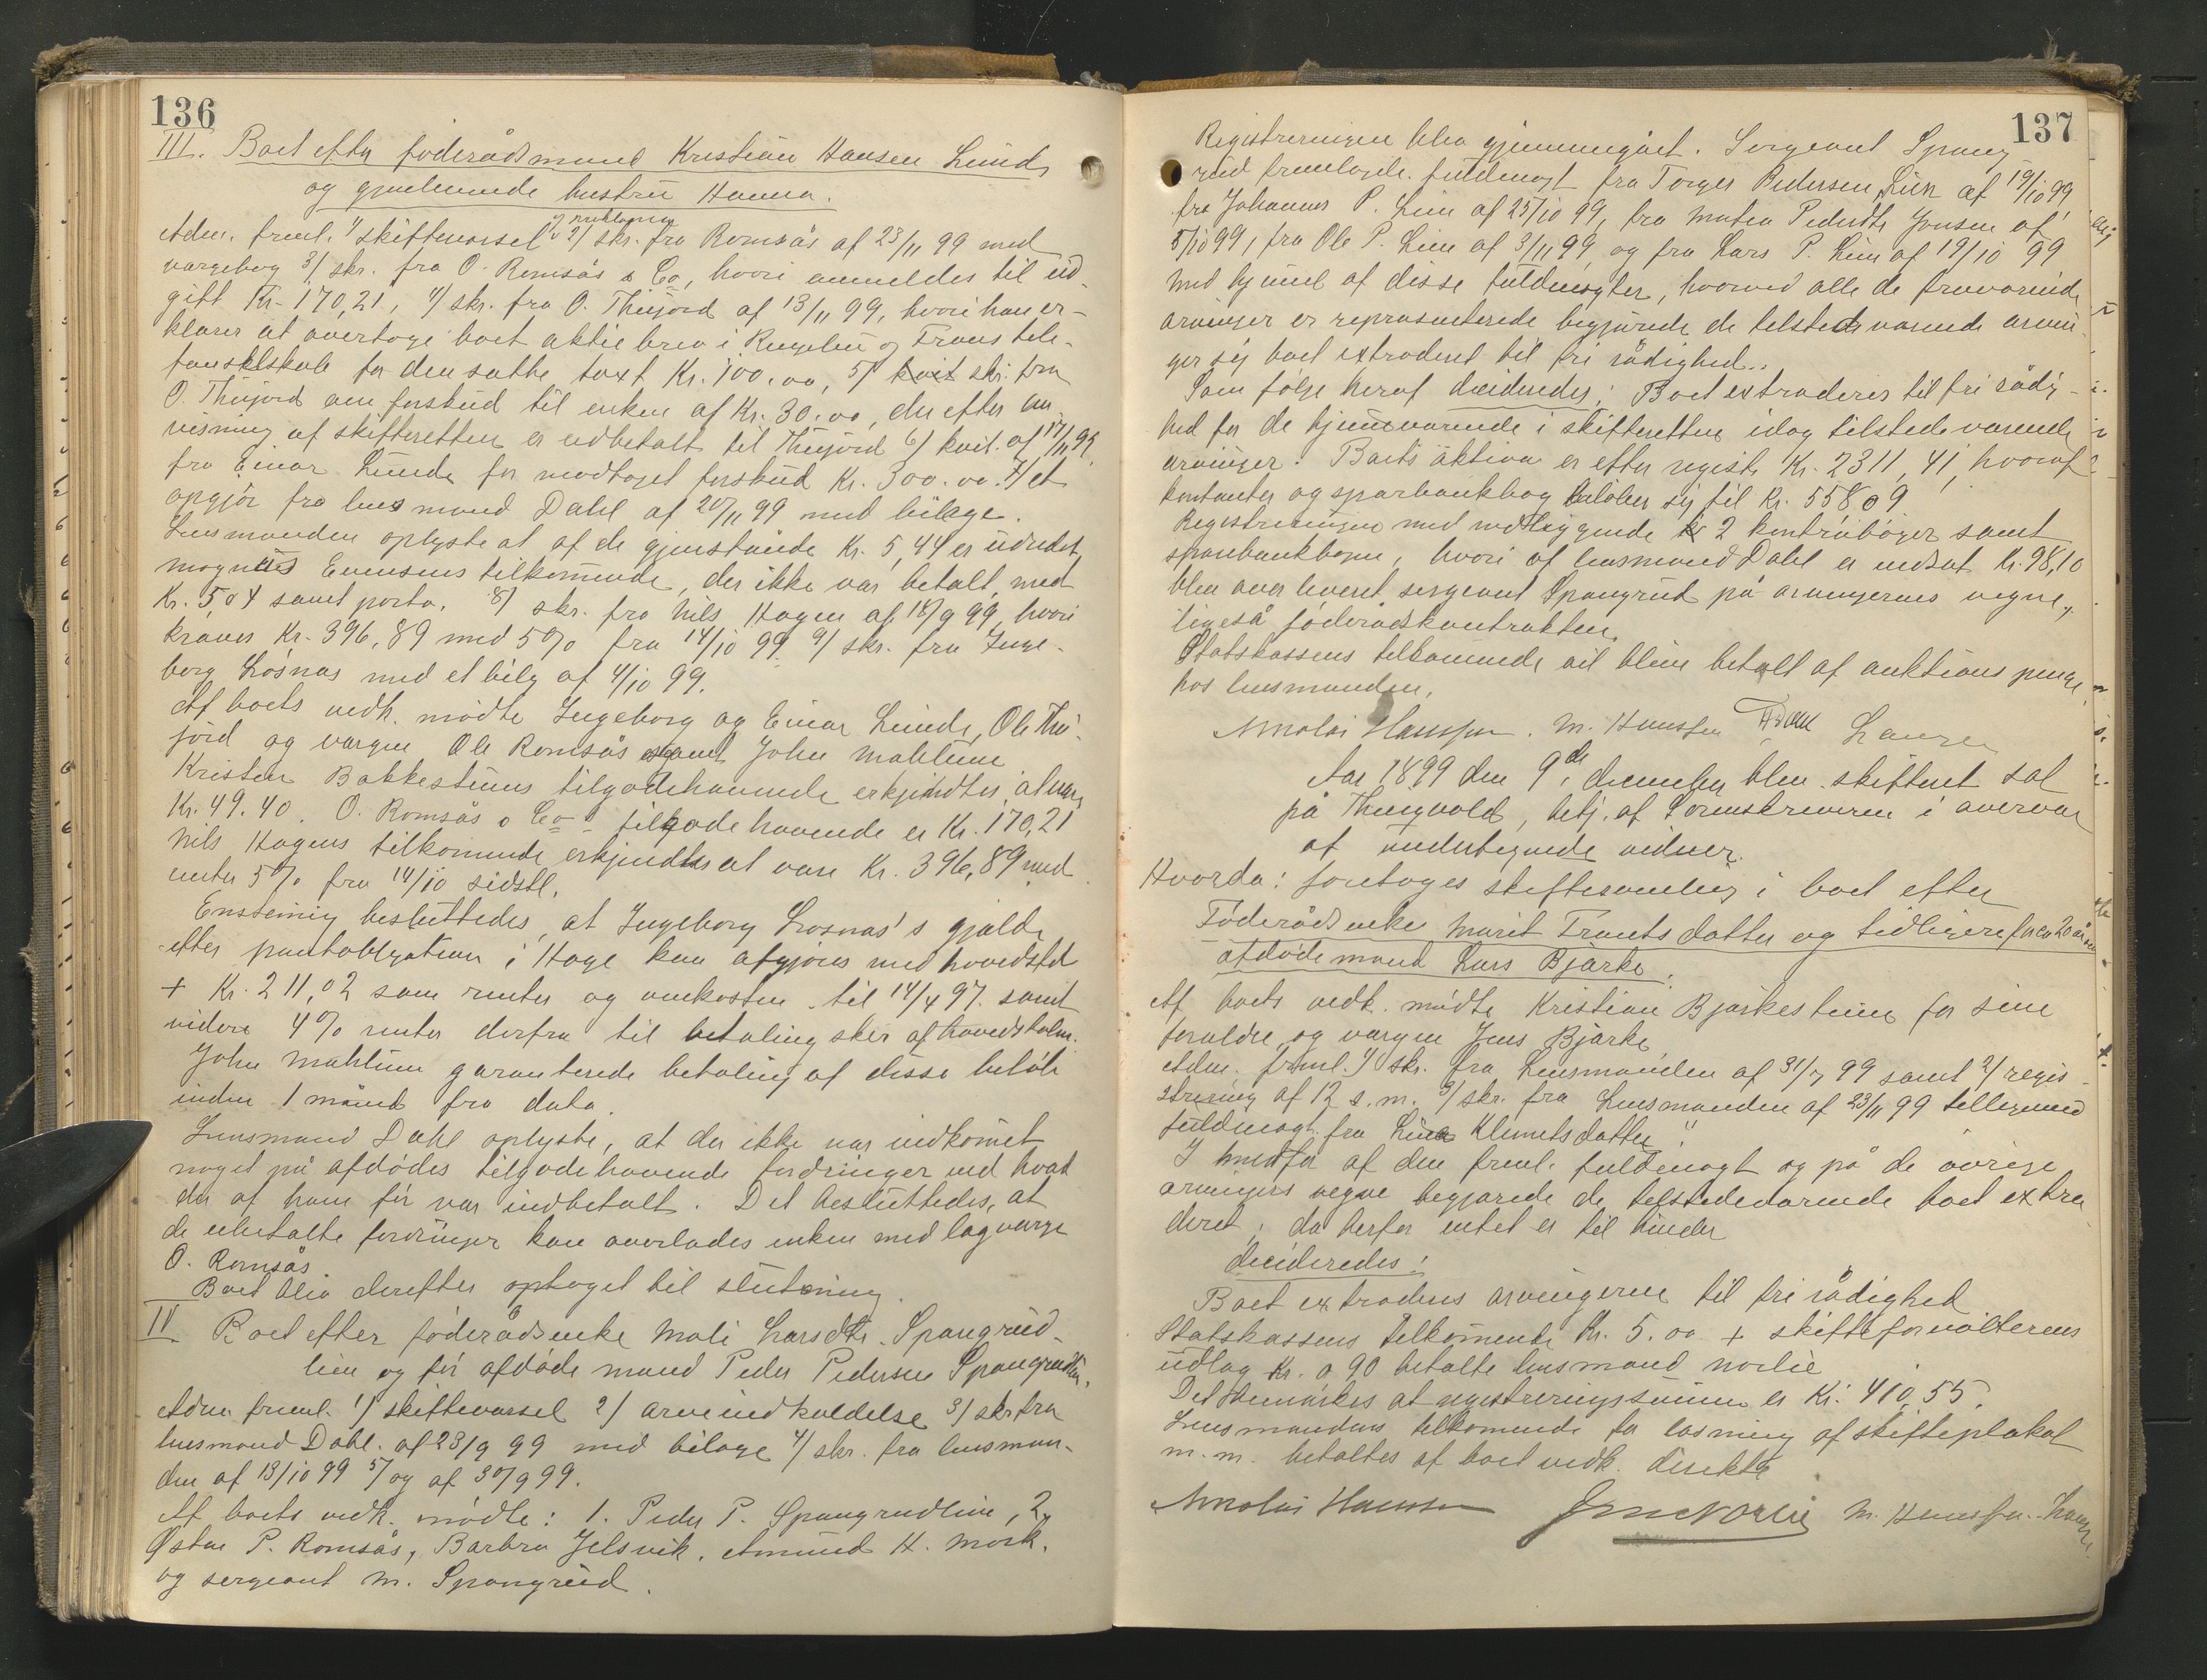 136
III. Boet efter føderådsmand Kristian Hansen Lunde
og gjenlevende hustru Hanna.
Adm. freml. 1/ skiftevarsel og reklamering 2/ skr. fra Romsås af 23/11 99 med
vargebog 3/ skr. fra O. Romsås & Co, hvori anmeldes til ud-
gift Kr. 170,21, 4/ skr. fra O. Thujord af 13/11 99, hvori han er-
klærer at overtage boet aktiebrev i Ringebu og Frons tele-
fonselskab for den satte taxt Kr. 100.00, 5/ skr. fra
O. Thujord om forskud til enken af Kr. 30.00, der efter an-
visning af skifteretten er udbetalt til Thujord 6/ kvit. af 17/11 99
fra Einar Lunde for modtaget forskud Kr. 300.00. 7/ et
opgjør fra lensmand Dahl af 20/11 99 med bilage.
Lensmanden oplyste at af de gjenstående Kr. 5,44 er udredet
Magnus Evensens tilkommende, der ikke var betalt, med
Kr. 5,04 samt porto. 8/ skr. fra Nils Hagen af 18/9 99, hvori
kræves Kr. 396,89 med 5% fra 14/10 99 9/ skr. fra Inge-
borg Losnas med et bilag af 4/10 99.
Af boets vedk. mødte Ingeborg og Einar Lunde, Ole Thu-
jord og vargen Ole Romsås samt John Mahlum
Kristen Bakkestuens tilgodehavende erkjendtes at være
Kr. 49.40. O. Romsås & Co tilgodehavende er Kr. 170,21
Nils Hagens tilkommende erkjendtes at være Kr. 396,89 med
renter 5% fra 14/10 sidstl.
Enstemig besluttedes, at Ingeborg Losnas's gjæld
efter pantobligation i Hage kan afgjøres med hovedstol
+ Kr. 211,02 som renter og omkostn. til 14/4 97 samt
videre 4% renter derfra til betaling sker af hovedstolen.
John Mahlum garanterede betaling af disse beløb
inden 1 måned fra dato.
Lensmand Dahl oplyste, at der ikke var indkommet
noget på afdødes tilgodehavende fordringer ud hvad
der af ham før var indbetalt. Det besluttedes, at
de ubetalte fordringer kan overlades enken med lagværge
O. Romsås
Boet blev derefter optaget til slutning.
IV Boet efter føderådsenke Mali Larsdtr. Spangrud-
lien og før afdøde mand Peder Pedersen Spangrudlien.
Adm. freml. 1/ skiftevarsel 2/ arveindkaldelse 3/ skr. fra
lensmand Dahl af 23/9 99 med bilage 4/ skr. fra lensman-
den af 13/10 99 5/ og af 30/9 99.
Af boets vedk. mødte: 1. Peder P. Spangrudlien, 2.
Østen P. Romsås, Barbra Jelsvik, Amund H. Mork.
og sergeant M. Spangrud.
137
Registreringen blev gjennemgået. Sergeant Spang-
rud fremlagde fuldmagt fra Torger Pedersen Lien af 19/10 99
fra Johannes P. Lien af 25/10 99, fra Mathea Pedersdtr Jonsen af
5/10 99, fra Ole P. Lien af 3/11 99, og fra Lars P. Lien af 19/10 99
med hjemmel af disse fuldmagter, hvorved alle de fraværende
arvinger er repræsenterede begjærede de tilstedeværende arvin-
ger sig boet extraderet til fri rådighed.
Som følge heraf decideredes: Boet extraderes til fri rådig-
hed for de hjemmeværende i skifteretten idag tilstedeværende
arvinger. Boets aktiva er efter registr. Kr. 2311,41, hvoraf
kontanter og sparbankbog beløber sig til Kr. 558 09
Registreringen med vedliggende 2 kontrabøger samt
sparebankbogen, hvori af lensmand Dahl er indsat Kr. 98,10
blev overleveret sergeant Spangrud på arvingernes vegne,
ligeså føderådskontrakten.
Statskassens tilkommende vil blive betalt af auktionspenge
hos lensmanden.
Nicolai Hansen. M. Hansen Dahl Lange
Aar 1899 den 9de december blev skifteret sat
på Thingvold, betj. af Sorenskriveren i overvær
af undertegnede vidner.
Hvorda: foretoges skiftesamling i boet efter
Føderådsenke Marit Frantsdatter og tidligere for ca 20 år siden
afdøde mand Lars Bjørke.
Af boets vedk. mødte Kristian Bjørkestuen for sine
forældre og vargen Jens Bjørke
Adm. freml. 1/ skr. fra Lensmanden af 31/7 99 samt 2/ regis-
trering af 12 s.m. 3/ skr. fra Lensmanden af 23/11 99 tilligemed
fuldmagt fra Lina Klemetsdatter.
I medfør af den freml. fuldmagt og på de øvrige
arvingers vegne begjærede de tilstedeværende boet extra-
deret; da herfor intet er til hinder
decideredes:
Boet extraderes arvingerne til fri rådighed
Statskassens tilkommende Kr. 5.00 + skifteforvalterens
udlæg Kr. 0 90 betalte lensmand Norlie
Det bemærkes at registreringssummen er Kr. 410,55.
Lensmandens tilkommende for læsning af skifteplakat
m.m. betaltes af boet vedk. direkte
Nicolai Hansen M. Hansen. Lange